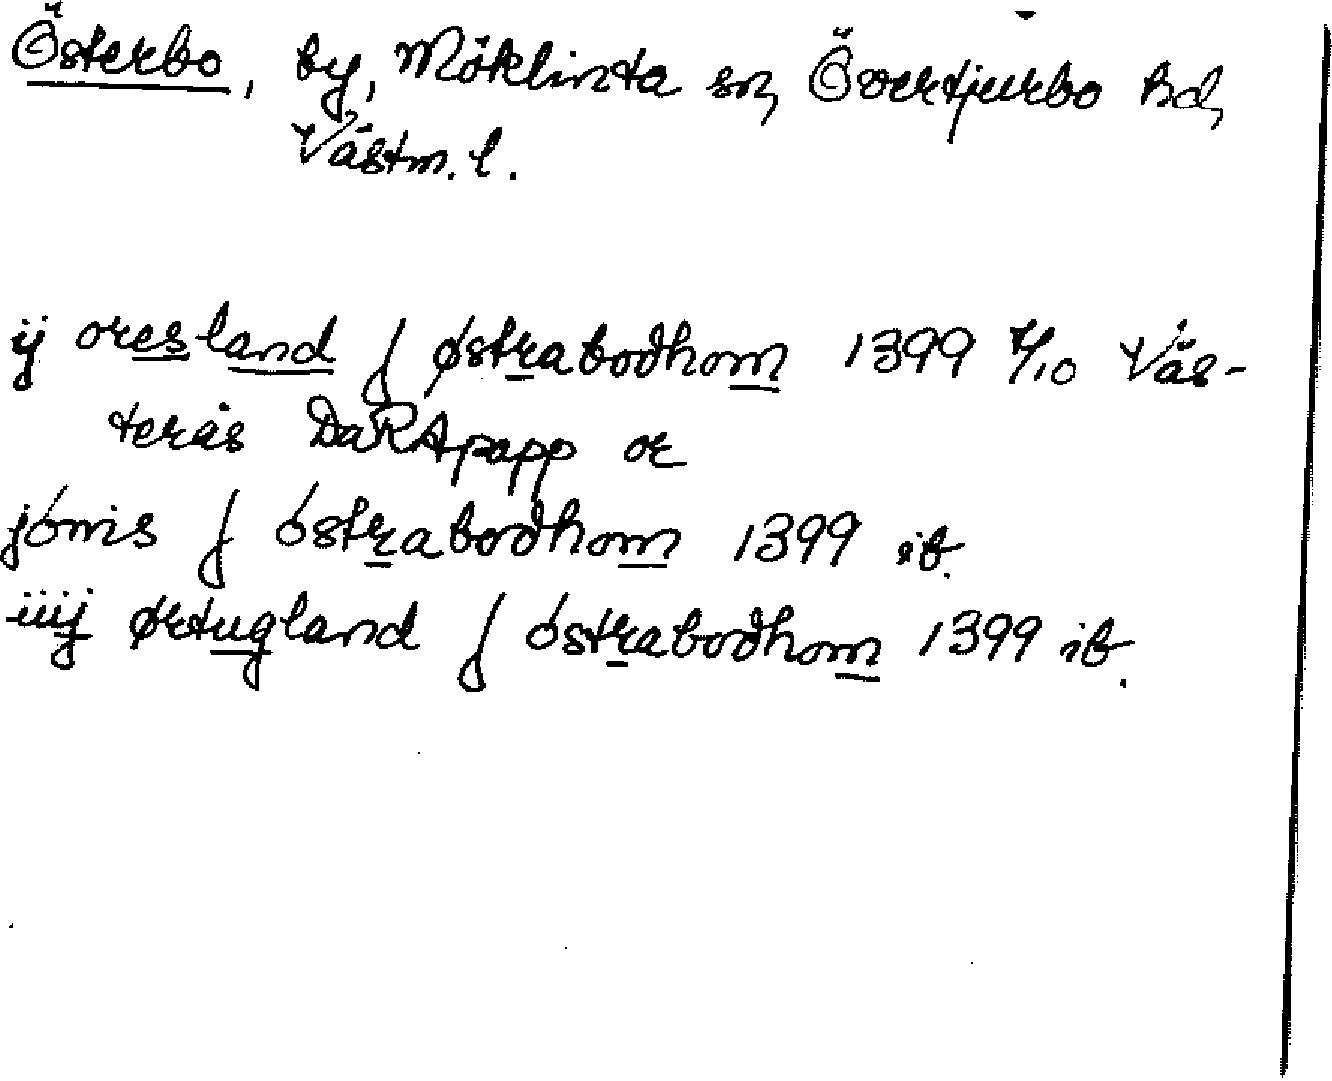 Österbo, by, Möklinta sn, Övertjurbo hd,
Västm. l.
ij oresland j østraboðhom 1399 7/10 Väs-
terås DaRApapp or
jónis j óstraboðhom 1399 ib.
iiij ørtugland j óstraboðhom 1399 ib.